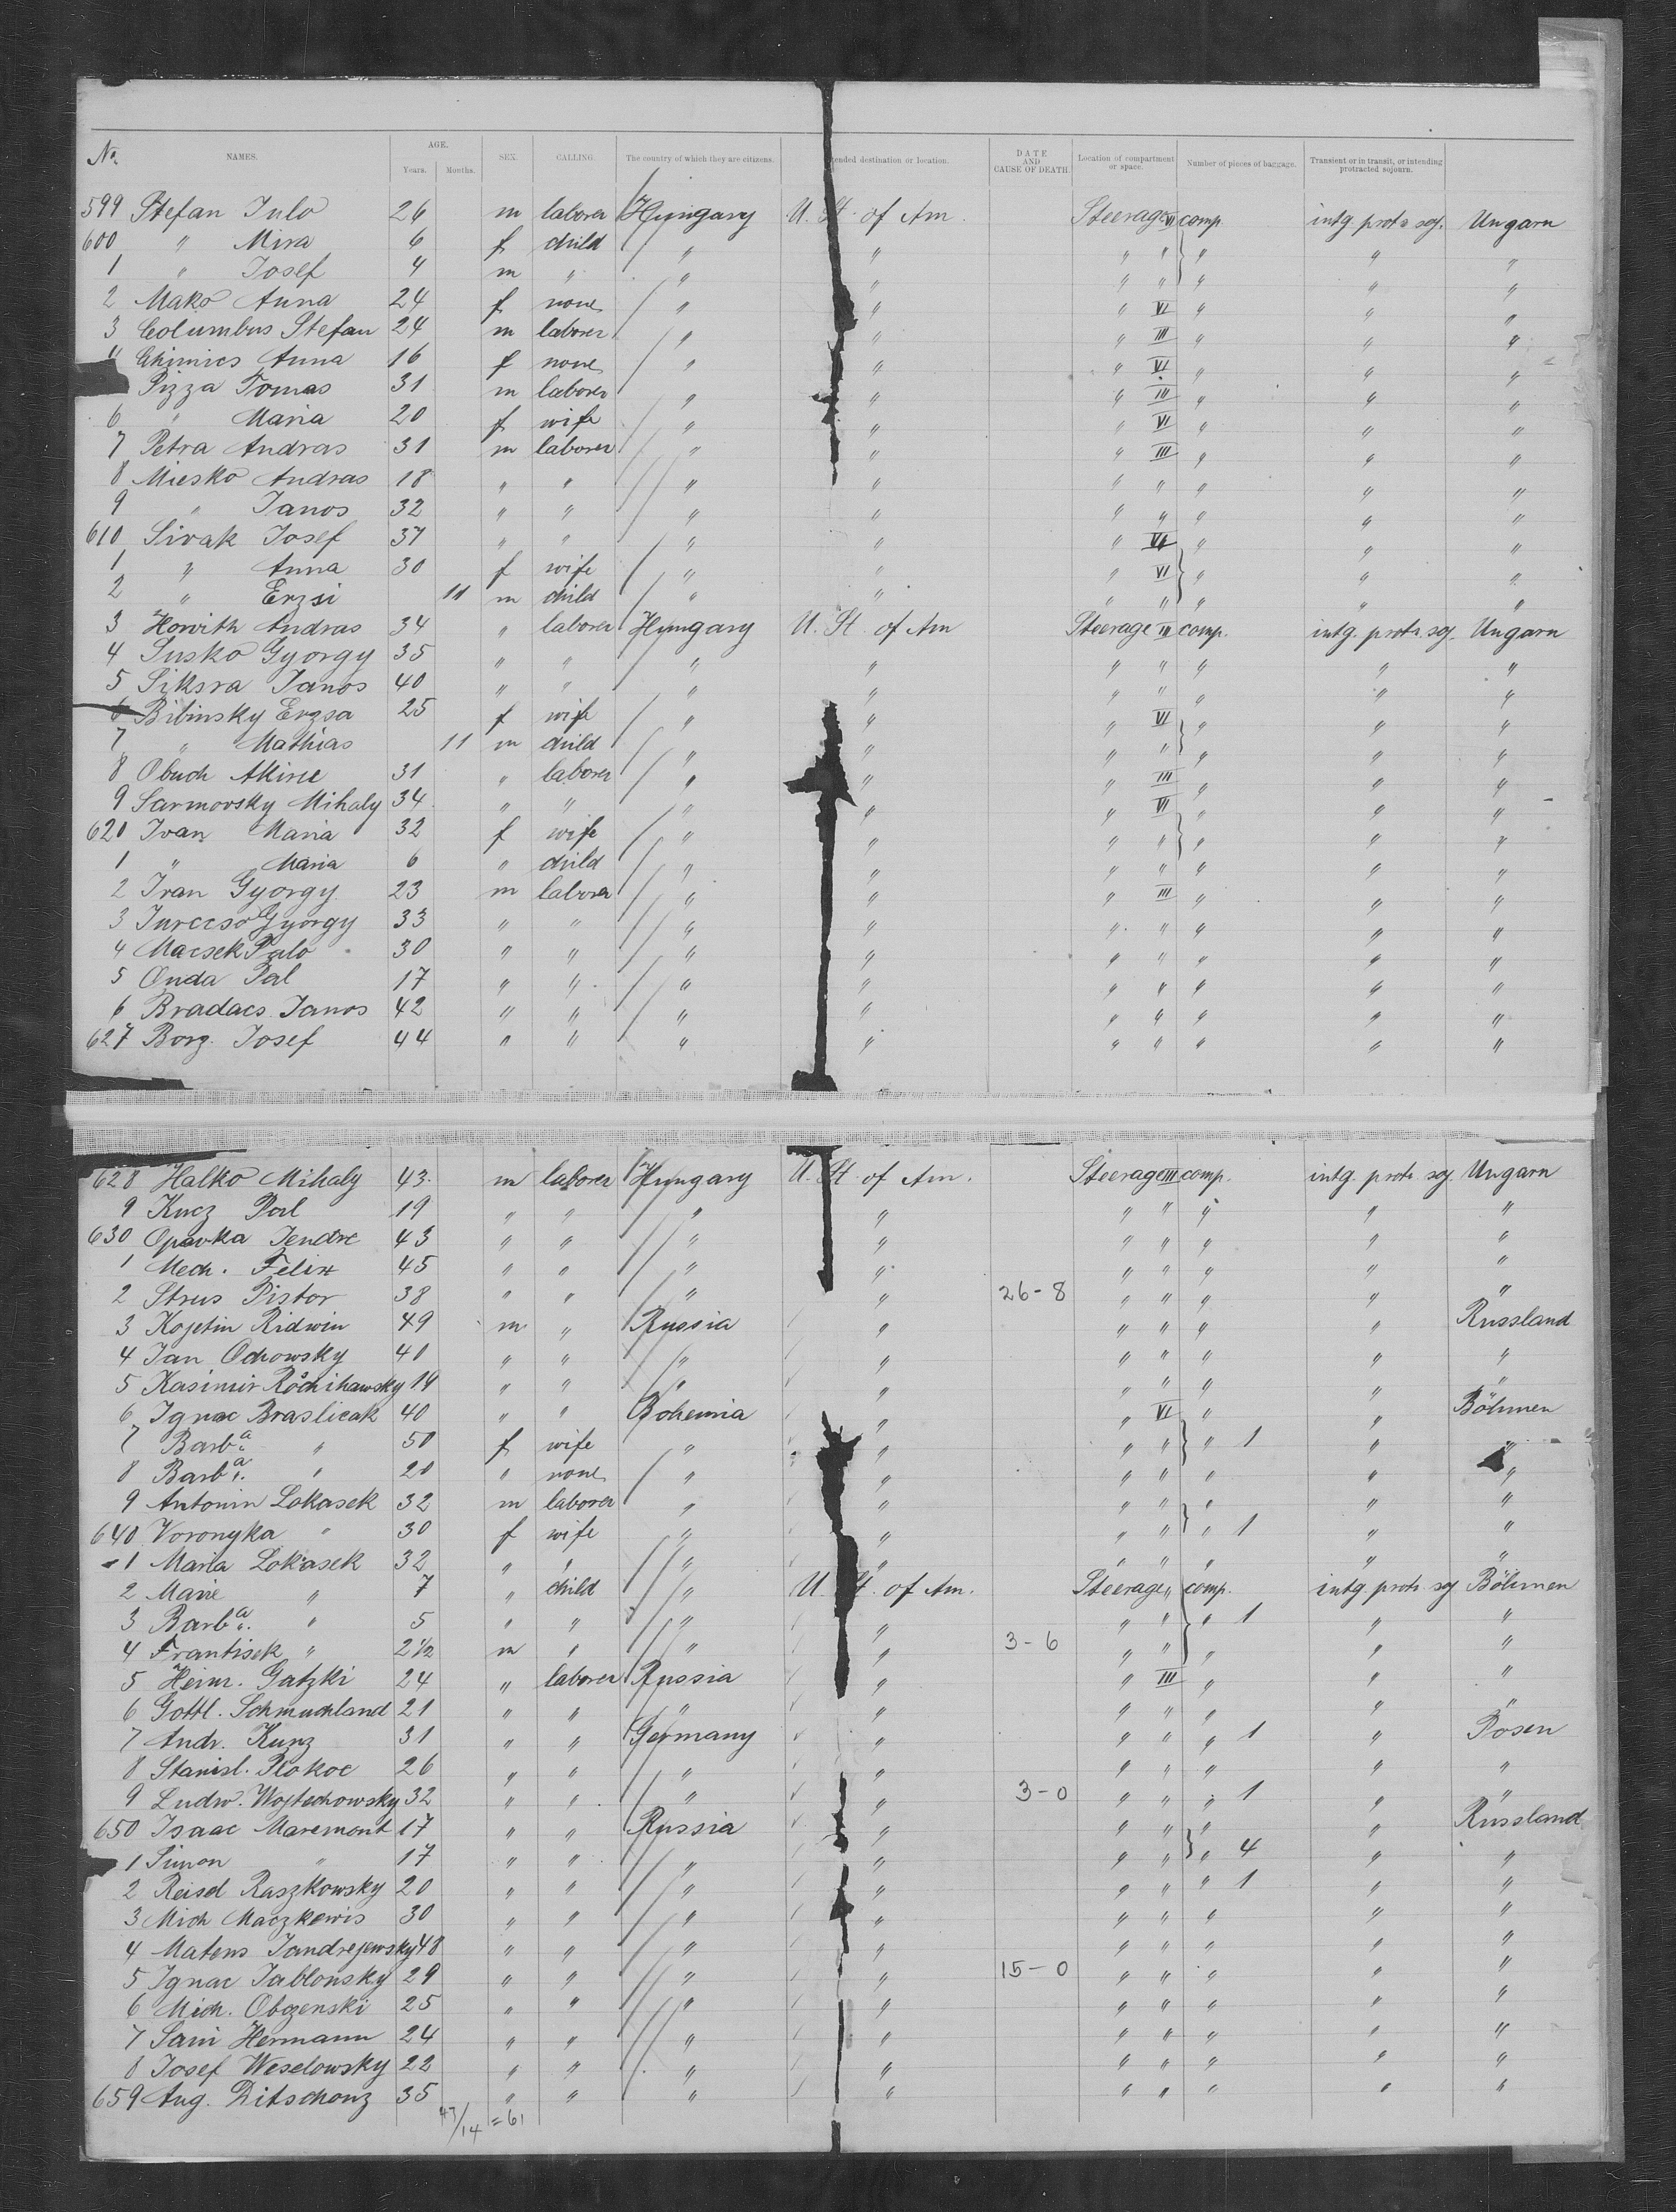 No. NAMES. AGE. Years. Months. SEX. CALLING. The country of which they are citizens. ended destination or location. DATE AND CAUSE OF DEATH. Location of compartment or space. Number of pieces of baggage. Transient or in transit, or intending protracted sojourn.
599 Stefan Julo 26 m laborer Hungary U. St. of Am. Steerage VI comp. intg. protr. soj. Ungarn
600 " Mira 6 f child " " " " " " "
1 " Josef 4 m " " " " " " " "
2 Mako Anna 24 f none " " " VI " " "
3 Columbus Stefan 24 m laborer " " " III " " "
" Chimics Anna 16 f none " " " VI " " "
Pizza Tomas 31 m laborer " " " III " " "
6 " Maria 20 f wife " " " VI " " "
7 Petra Andras 31 m laborer " " " III " " "
8 Miesko Andras 18 " " " " " " " " "
9 " Janos 32 " " " " " " " " "
610 Sivak Josef 37 " " " " " VI " " "
1 " Anna 30 f wife " " " VI " " "
2 " Erzsi 11 m child " " " " " " "
3 Howith Andras 34 " laborer Hungary U. St. of Am Steerage III comp. intg. protr. soj. Ungarn
4 Susko Gyorgy 35 " " " " " " " " "
5 Siksra Janos 40 " " " " " " " " "
6 Bibinsky Erzsa 25 f wife " " " VI " " "
7 " Mathias 11 m child " " " " " " "
8 Obuch 31 " laborer " " " III " " "
9 Sarmovsky Mihaly 34 " " " " " VI " " "
620 Ivan Maria 32 f wife " " " " " " "
1 " Maria 6 " child " " " " " " "
2 Ivan Gyorgy 23 m laborer " " " III " " "
3 Jurecso Gyorgy 33 " " " " " " " " "
4 Macsek Palo 30 " " " " " " " " "
5 Onda Pal 17 " " " " " " " " "
6 Bradacs Janos 42 " " " " " " " " "
627 Borg. Josef 44 " " " " " " " " "
628 Halko Mihaly 43 m laborer Hungary U. St. of Am. Steerage III comp. intg. protr. soj. Ungarn
9 Kucz Pal 19 " " " " " " " " "
630 Opavka Jendre 43 " " " " " " " " "
1 Mech. Felix 45 " " " " " " " " "
2 Strus Pistor 38 " " " " 26-8 " " " " "
3 Kojetin Ridwin 49 m " Russia " " " " " Russland
4 Jan Ochowsky 40 " " " " " " " " "
5 Kasimir 19 " " " " " " " " "
6 Ignac Braslicak 40 " " Bohemia " " VI " " Böhmen
7 Barba. " 50 f wife " " " " " 1 " "
8 Barba. " 20 " none " " " " " " "
9 Antonin Lokasek 32 m laborer " " " " " " "
640 Voronyka " 30 f wife " " " " " 1 " "
1 Maria Lokasek 32 " " " " " " " " "
2 Marie " 7 " child " U. St. of Am. Steerage " comp. intg. protr. soj Böhmen
3 Barba. " 5 " " " " " " " 1 " "
4 Frantisek " 2 1/2 m " " " 3-6 " " " " "
5 Heinr. Gatzki 24 " laborer Russia " " III " " "
6 Gottl. Schmuchland 21 " " " " " " " " "
7 Andr. Kunz 31 " " Germany " " " " 1 " Posen
8 Stanisl. Plokoc 26 " " " " " " " " "
9 Ludw. Wojtechowsky 32 " " " " 3-0 " " " 1 " "
650 Isaac Maremont 17 " " Russia " " " " " Russland
1 Simon " 17 " " " " " " " 4 " "
2 Reisel Raszkowsky 20 " " " " " " " 1 " "
3 Mich Maczkewis 30 " " " " " " " " "
4 Matens Jandrejewsky 48 " " " " " " " " "
5 Ignac Jablonsky 29 " " " " 15-0 " " " " "
6 Mich. Obzenski 25 " " " " " " " " "
7 Sam Hermann 24 " " " " " " " " "
8 Josef Weselowsky 22 " " " " " " " " "
659 Aug. Ditschonz 35 " " " " " " " " "
47/14 = 61